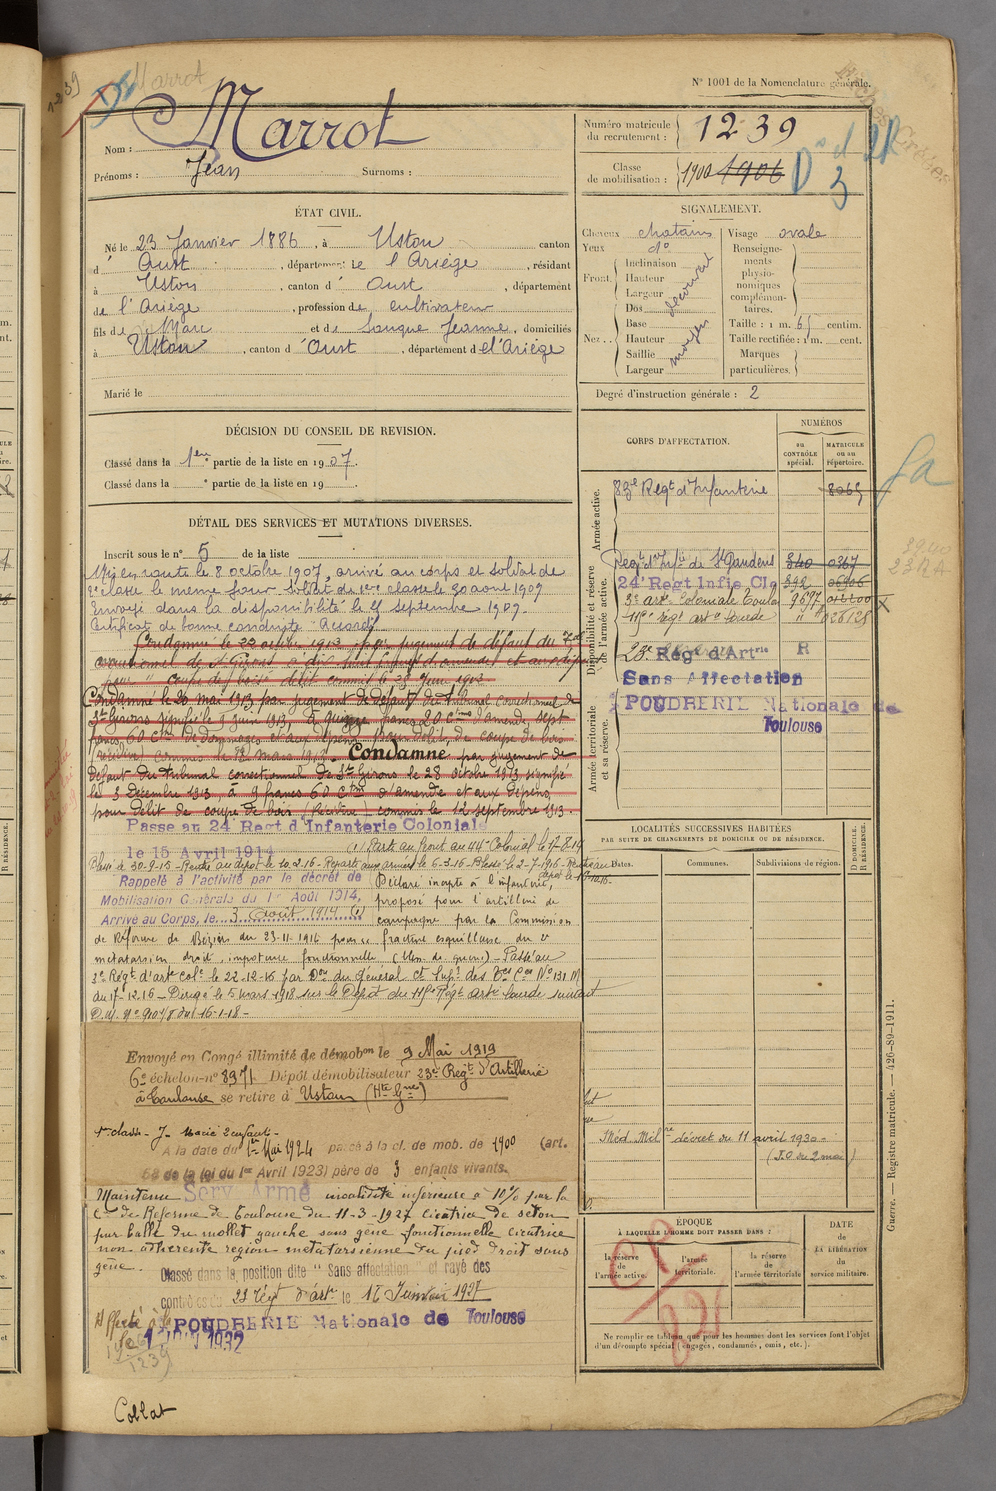 Marrot
1239
Nº 1001 de la Nomenclature générale.
Nom : Marrot
Prénoms : Jean Surnoms :
Numéro matricule du recrutement : 1239
Classe de mobilisation : 1900 1906
ÉTAT CIVIL.
Né le 23 Janvier 1886, à Ustou canton
d' Oust, département de l'Ariège, résidant
à Ustou, canton d' Oust, département
de l'Ariège, profession de cultivateur
fils de Marc et de Souque Jeanne, domiciliés
à Ustou, canton d' Oust, département de l'Ariège
Marié le
SIGNALEMENT.
Cheveux chatains Visage ovale
Yeux dº
Front. Inclinaison Hauteur Largeur découvert
Nez.. Dos Base Hauteur Saillie Largeur moyen
Renseignements physionomiques complémentaires.
Taille : 1 m. 65 centim.
Taille rectifiée : 1 m. cent.
Marques particulières.
Degré d'instruction générale : 2
DÉCISION DU CONSEIL DE REVISION.
Classé dans la 1ère partie de la liste en 1907.
Classé dans la e partie de la liste en 19
DÉTAIL DES SERVICES ET MUTATIONS DIVERSES.
Inscrit sous le nº 5 de la liste
Mis en route le 8 octobre 1907, arrivé au corps et soldat de
2e classe le même jour. Soldat de 1ère classe le 30 aout 1909
Envoyé dans la disponibilité le 25 septembre 1909.
Certificat de bonne conduite "Accordé"
Condamné le 22 octobre 1913 par jugement de défaut du
correctionnel de St Girons à
pour coupe de bois délit commis le 25 juin 1913
Condamné le 20 mai 1913 par jugement de défaut du Tribunal correctionnel de
St Girons signifié le 9 juin 1913, à quinze francs 20 Cmes d'amende, sept
francs 60 cmes de dommages et aux dépens pour délit de coupe de bois
(récidive) commis le mars 1913. Condamné par jugement de
défaut du tribunal correctionnel de St Girons le 28 octobre 1913, signifié
le 3 Décembre 1913, à 9 francs 60 cmes d'amende et aux dépens,
pour délit de coupe de bois (Récidive) commis le 12 septembre 1913.
Passé au 24e Regt d'Infanterie Coloniale
le 15 Avril 1914
(1) Parti au front au 44e Colonial le 17-8-14
Blessé le 30-9-15 - Rentré au dépôt le 10.2.16 - Reparti aux armées le 6-3-16 - Blessé le 2-7-1916 - Rentré au
dépôt le
Rappelé à l'activité par le décret de
Mobilisation Générale du 1er Août 1914,
Arrivé au Corps, le 3 août 1914 (1)
Déclaré inapte à l'infanterie,
proposé pour l'artillerie de
campagne par la Commission
de Réforme de Béziers du 23-11-1916 pour fracture esquilleuse du 2e
metatarsien droit, impotence fonctionnelle (bless. de guerre) - Passé au
3e Régt d'arte cole le 22-12-16 par Don du Général Ct Supr des
du 17-12-16 - Dirigé le 5 mars 1918 sur le Dépot du 118e Régt arte lourde suivant
Envoyé en Congé illimité de démobon le 9 Mai 1919
6e échelon - nº 8971 Dépôt démobilisateur 23e Régt d'Artillerie
à Toulouse se retire à Ustou (Hte Gne)
A la date du 1er Mai 1924 passé à la cl. de mob. de 1900 (art.
58 de la loi du 1er Avril 1923) père de 3 enfants vivants.
Maintenu Serv. Armé invalidité inférieure à 10% par la
Con de Réforme de Toulouse du 11-3-1927 cicatrice de séton
par balle du mollet gauche sans gêne fonctionnelle cicatrice
non adhérente région métatarsienne du pied droit sans
gêne.
Classé dans la position dite "Sans affectation" et rayé des
contrôles du 23 Régt d'arte le 15 Janvier 1927
Affecté à la POUDRERIE Nationale de Toulouse
le 1 JUIN 1932
1239
Collat
CORPS D'AFFECTATION.
NUMÉROS
au CONTRÔLE spécial.
MATRICULE ou au répertoire.
Armée active.
83e Regt d'Infanterie 8065
Disponibilité et réserve de l'armée active.
Regt d'Infie de St Gaudens 840 0367
24e Regt Infie Cle 392
3e arte Coloniale Toulon 9697
118e regt arte lourde "
23e Rég d'Artrie R
Sans Affectation
POUDRERIE Nationale de
Toulouse
Armée territoriale et sa réserve.
LOCALITÉS SUCCESSIVES HABITÉES
PAR SUITE DE CHANGEMENTS DE DOMICILE OU DE RÉSIDENCE.
Dates. Communes. Subdivisions de région. D DOMICILE. R RÉSIDENCE.
Méd. Milre décret du 11 avril 1930 -
(J.O du 2 mai)
ÉPOQUE
À LAQUELLE L'HOMME DOIT PASSER DANS :
la réserve de l'armée active.
l'armée territoriale.
la réserve de l'armée territoriale
DATE de LA LIBÉRATION du service militaire.
Ne remplir ce tableau que pour les hommes dont les services font l'objet
d'un décompte spécial (engagés, condamnés, omis, etc.).
Guerre. — Registre matricule. — 426-89-1911.